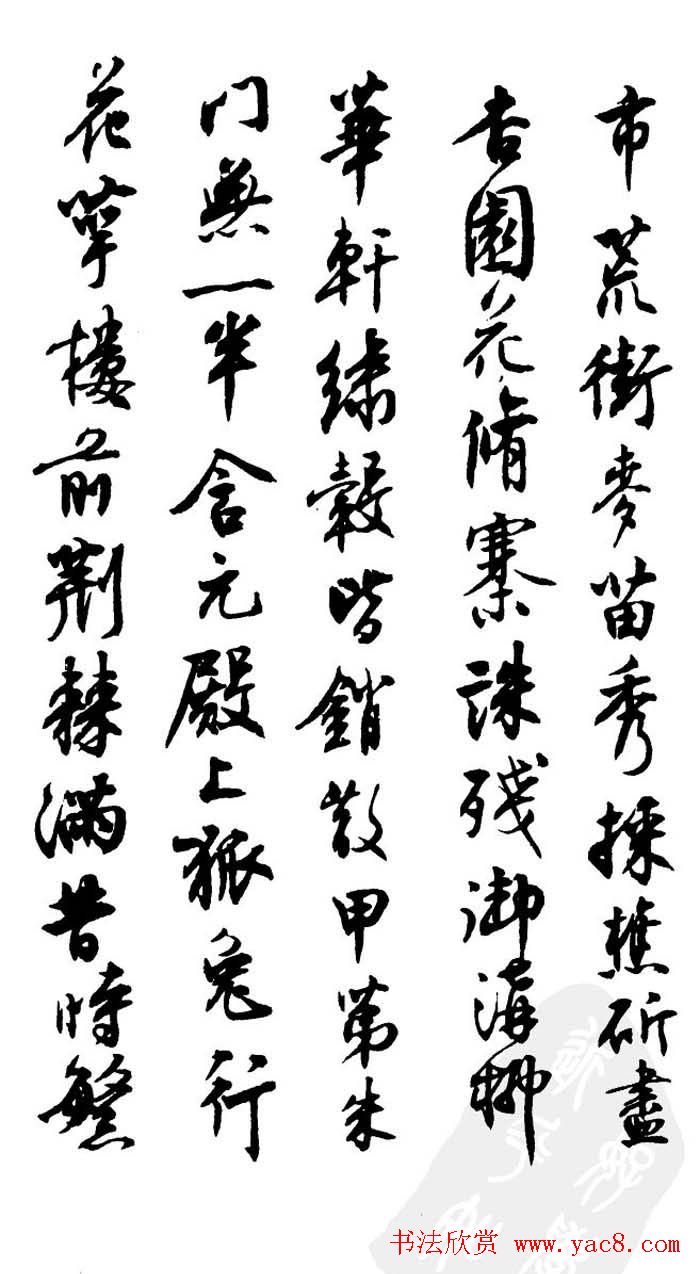 市荒街麥苗秀採樵斫盡
杏園花脩寨誅殘御溝柳
華軒綉轂皆銷散甲第朱
門無一半含元殿上狐兔行
花萼樓前荊棘滿昔時繁
书法欣赏 www.yac8.com